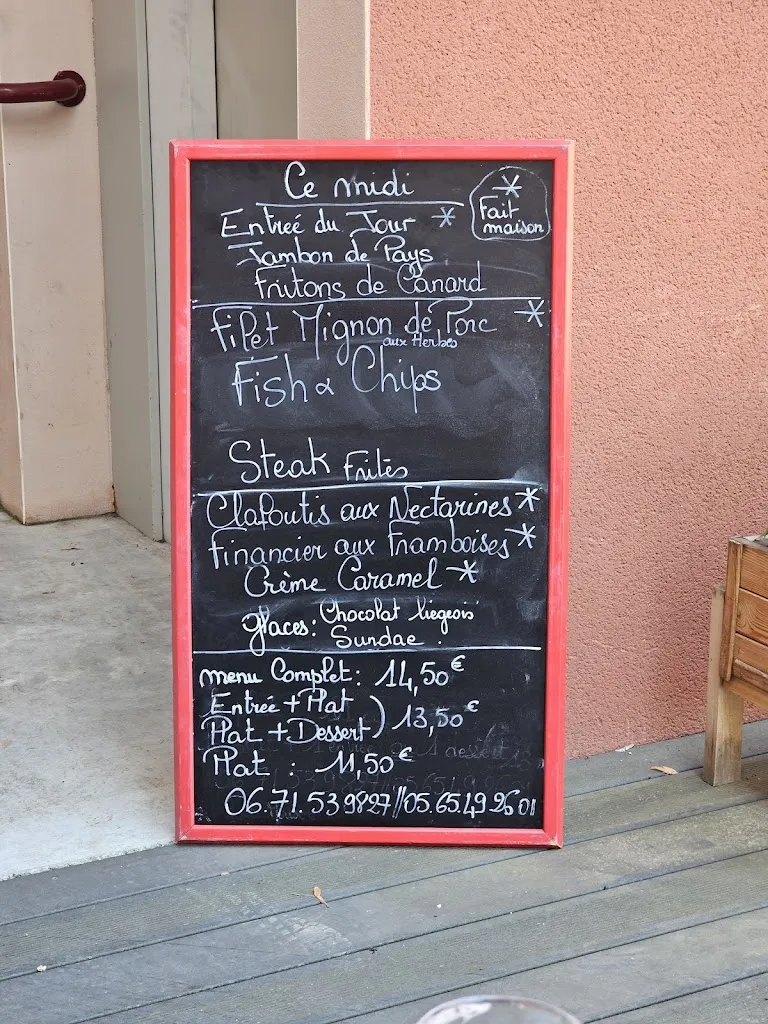 Ce midi
* Fait maison
Entreé du Jour *
Jambon de Pays
Fritons de Canard
Filet Mignon de Porc *
aux Herbes
Fish & Chips
Steak Frites
Clafoutis aux Nectarines *
Financier aux Framboises *
Crème Caramel *
glaces: Chocolat liegeois
Sundae
menu Complet: 14,50€
Entrée + Plat
Plat + Dessert ) 13,50€
Plat : 11,50€
06.71.53 98 27 // 05.65.49 26 01